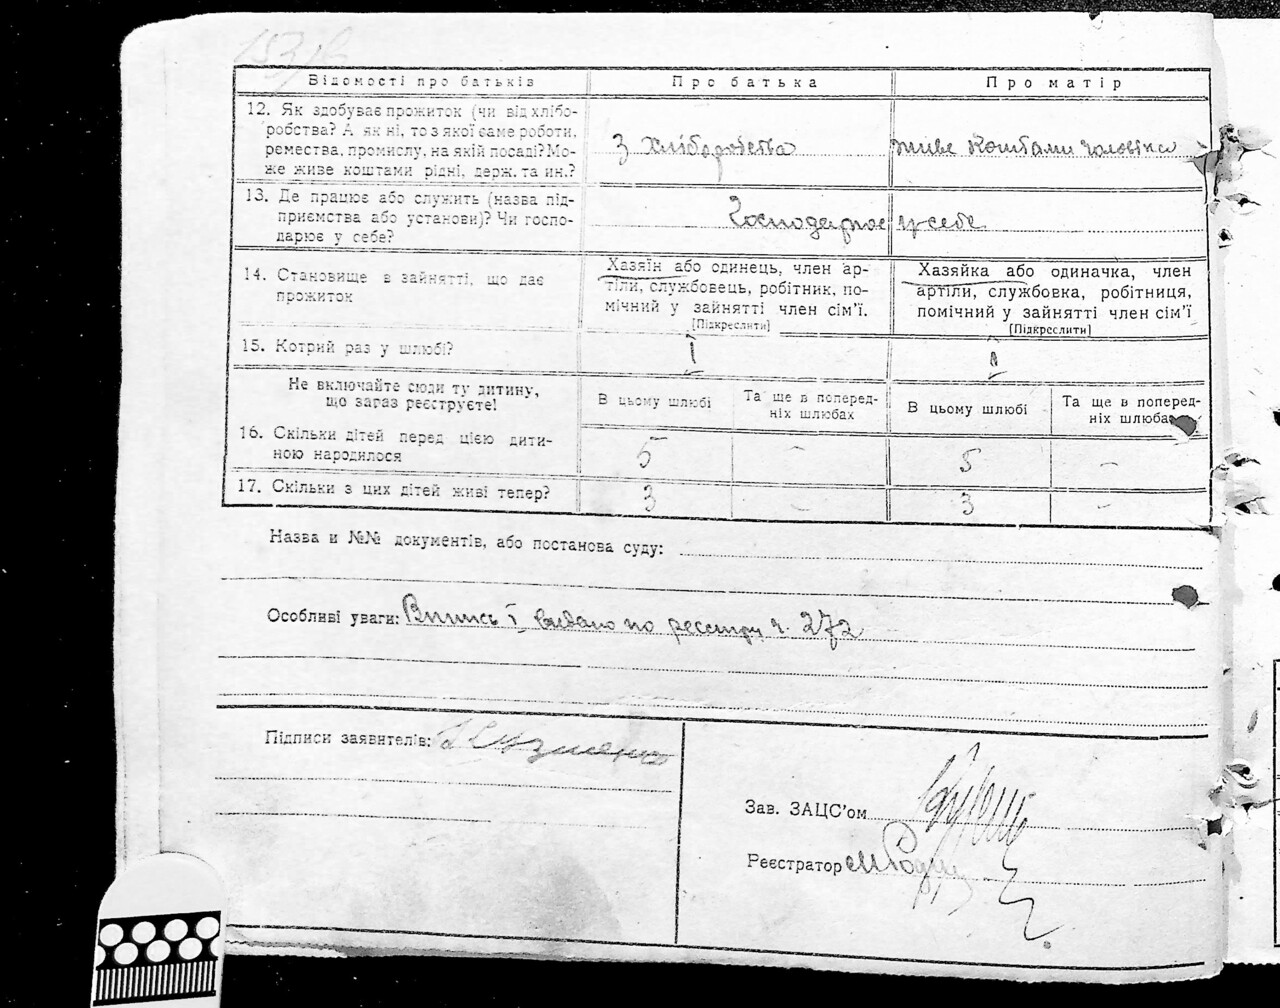 Відомості про батьків
Про батька
Про матір
12. Як здобуває прожиток (чи від хлібо-
робства? А як ні, то з якої саме роботи,
ремества, промислу, на якій посаді? Мо-
же живе коштами рідні, держ. та ин.?
З хліборобства
живе коштами чоловіка
13. Де працює або служить (назва під-
приємства або установи)? Чи госпо-
дарює у себе?
Господарює у себе
14. Становище в зайнятті, що дає
прожиток
Хазяїн або одинець, член ар-
тіли, службовець, робітник, по-
мічний у зайнятті член сім'ї.
[Підкреслити]
Хазяйка або одиначка, член
артіли, службовка, робітниця,
помічний у зайнятті член сім'ї
[Підкреслити]
15. Котрий раз у шлюбі?
І
І
Не включайте сюди ту дитину,
що зараз реєструєте!
В цьому шлюбі
Та ще в поперед-
ніх шлюбах
В цьому шлюбі
Та ще в поперед-
ніх шлюбах
16. Скільки дітей перед цією дити-
ною народилося
5
–
5
–
17. Скільки з цих дітей живі тепер?
3
–
3
–
Назва и №№ документів, або постанова суду:
Особливі уваги: Випись І видано по реєстру ч. 272
Підписи заявителів:
Зав. ЗАЦС'ом
Реєстратор